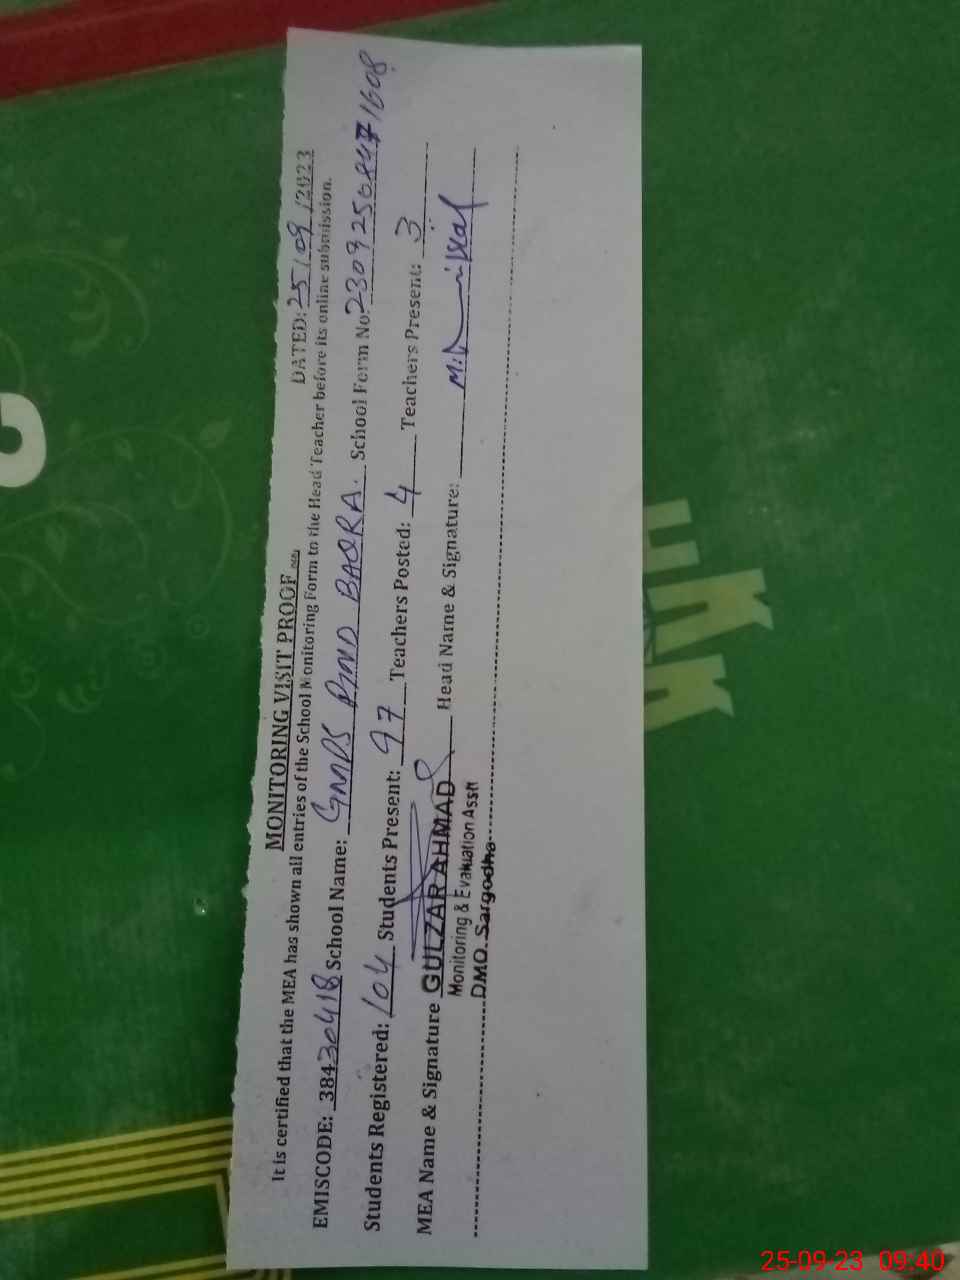 MONITORING VISIT PROOF
DATED: 25/09/2023
It is certified that the MEA has shown all entries of the School Monitoring Form to the Head Teacher before its online submission.
EMISCODE: 38430418 School Name: GMPS PIND BAQRA. School Form No.
Students Registered: 104 Students Present: 97 Teachers Posted: 4 Teachers Present: 3
MEA Name & Signature GULZAR AHMAD Head Name & Signature:
Monitoring & Evaluation Asstt
DMO. Sargodha
25-09-23 09:40